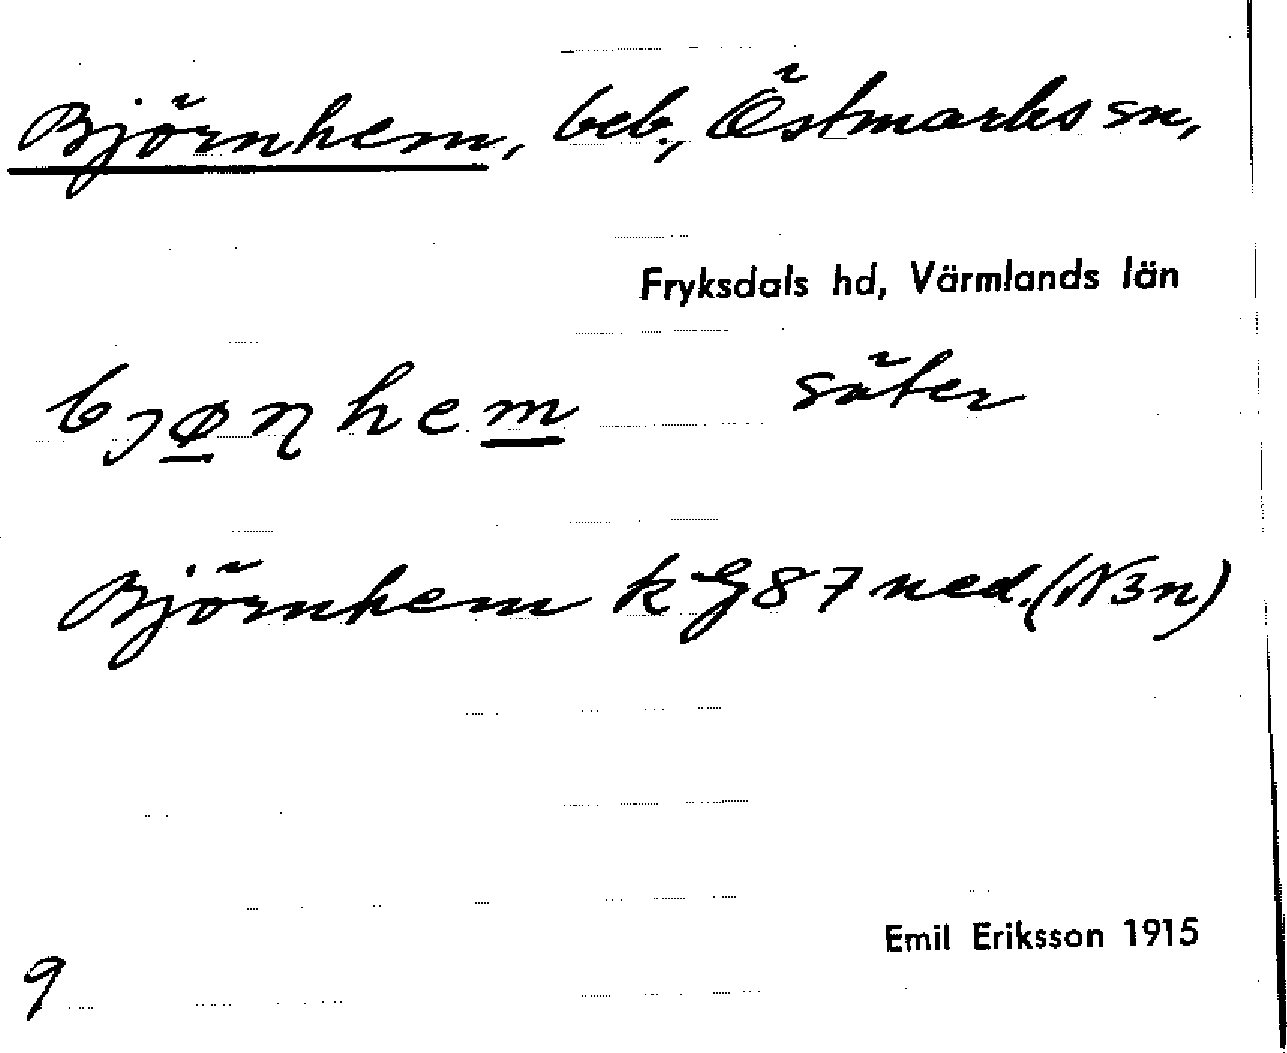 Björnhem, beb., Östmarks sn,
Fryksdals hd, Värmlands län
bjøɳhem säter
Björnhem k G 87 ned. (N3n)
Emil Eriksson 1915
9